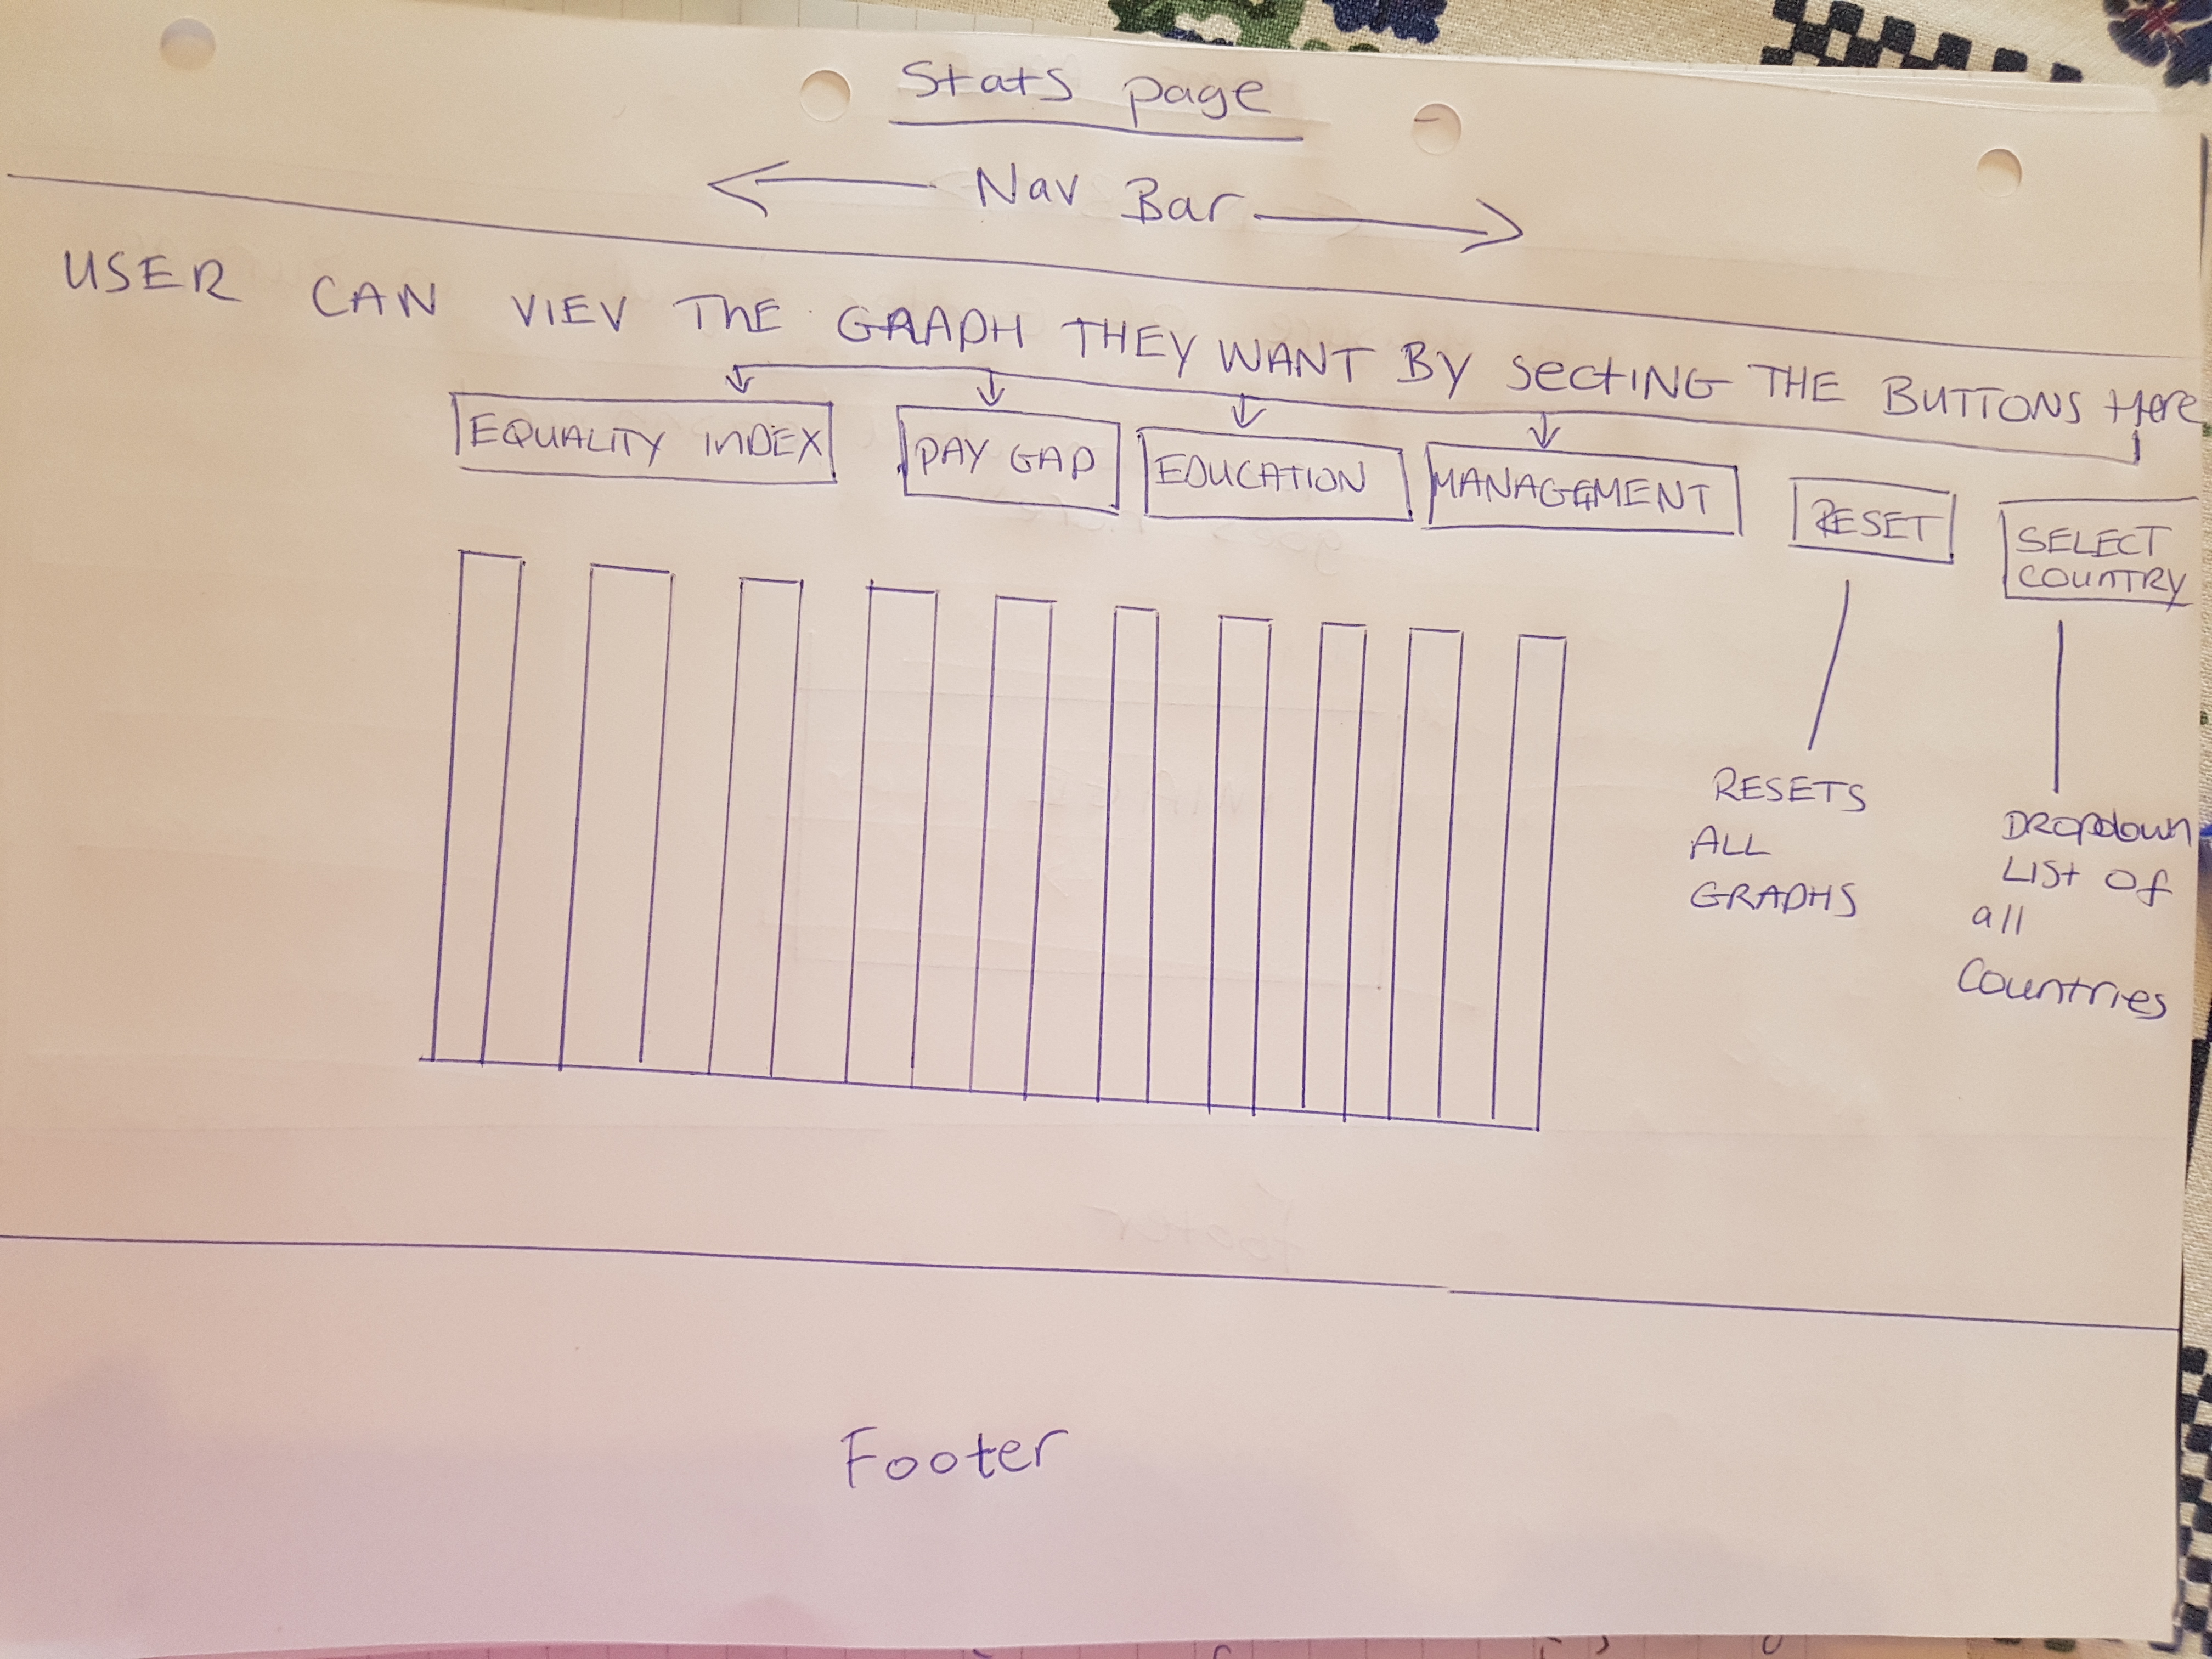 Stats page
Nav Bar
USER CAN VIEV THE GRAPH THEY WANT BY SECTING THE BUTTONS HARE
EQUALITY INDEX
PAY GAP
EDUCATION
MANAGAMENT
RESET
SELECT
COUNTRY
RESETS
ALL
GRAPHS
DROPDOWN
LIST OF
all
Countries
Footer